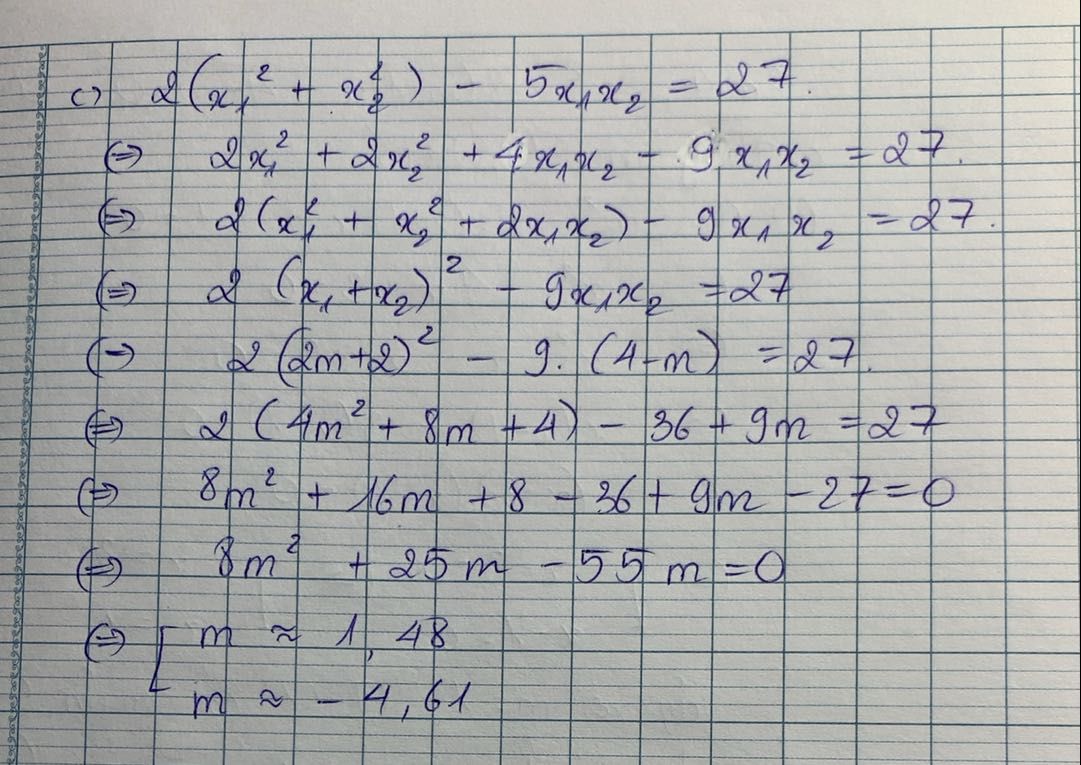 c) 2(x₁² + x₂²) - 5x₁x₂ = 27.
⇔ 2x₁² + 2x₂² + 4x₁x₂ - 9x₁x₂ = 27.
⇔ 2(x₁² + x₂² + 2x₁x₂) - 9x₁x₂ = 27.
⇔ 2(x₁ + x₂)² - 9x₁x₂ = 27
⇔ 2(2m+2)² - 9.(4-m) = 27.
⇔ 2(4m² + 8m + 4) - 36 + 9m = 27
⇔ 8m² + 16m + 8 - 36 + 9m - 27 = 0
⇔ 8m² + 25m - 55m = 0
⇔ [ m ≈ 1,48
m ≈ -4,61